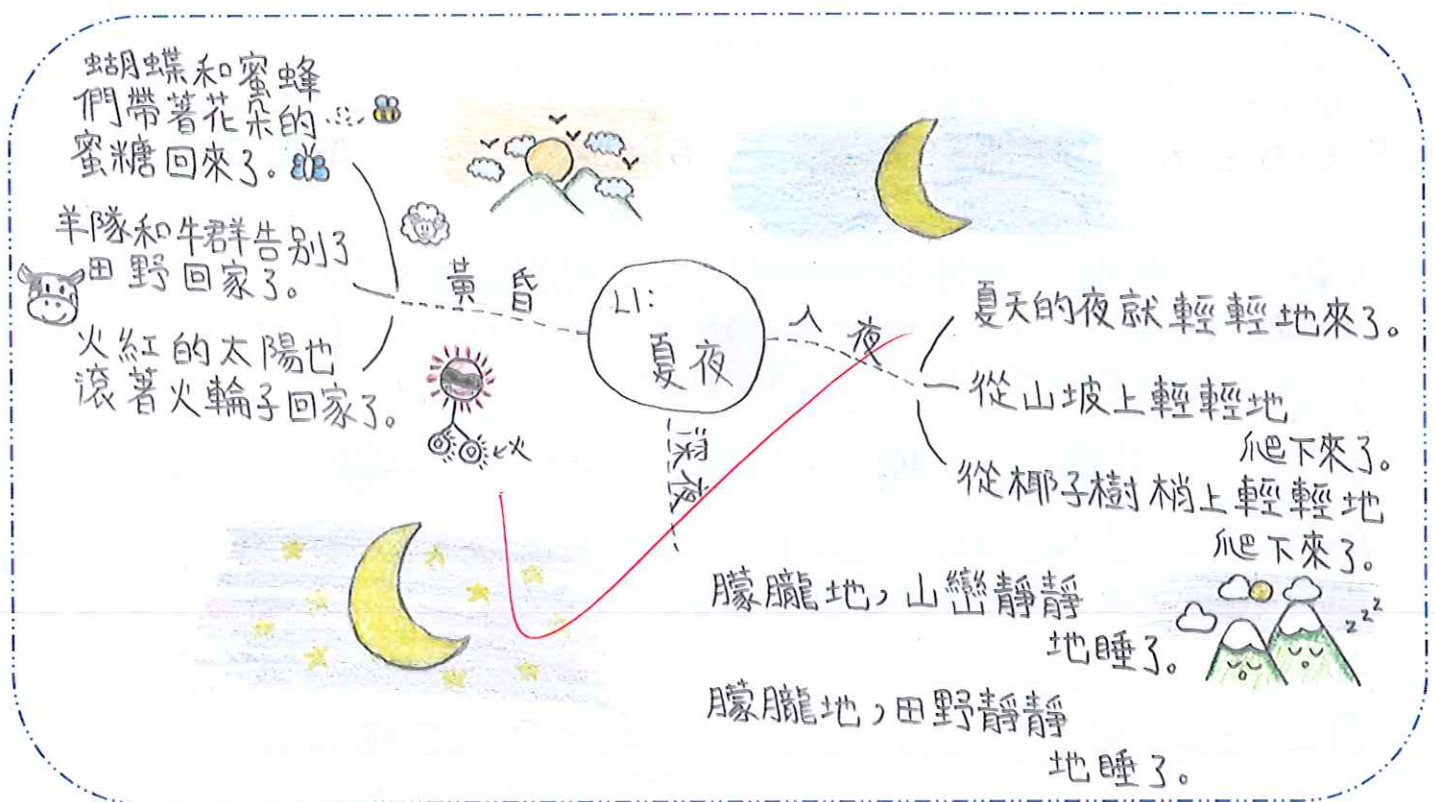 蝴蝶和蜜蜂
們帶著花朵的
蜜糖回來了。
羊隊和牛群告別了
田野回家了。
火紅的太陽也
滾著火輪子回家了。
火
黃昏
L1:
夏夜
入夜
夏天的夜就輕輕地來了。
從山坡上輕輕地
爬下來了。
從椰子樹梢上輕輕地
爬下來了。
深夜
朦朧地,山巒靜靜
地睡了。
zzz
朦朧地,田野靜靜
地睡了。